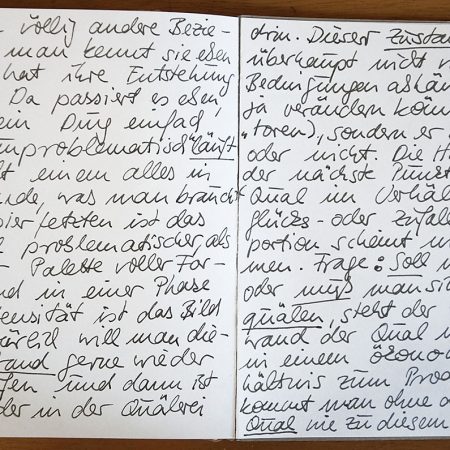 völlig andere Bezie-
man kennt sie eben
hat ihre Entstehung
Da passiert es eben,
ein Ding einfach
unproblematisch "läuft
einem alles in
was man braucht
letzten ist das
problematischer als
Palette voller Far-
in einer Phase
ist das Bild
will man die-
gerne wieder
und dann ist
in der Quälerei
drin. Dieser Zustan
überhaupt nicht
Bedingungen abhän
ja verändern könn
"toren), sondern er
oder nicht. Die
der nächste Punkt
Qual im Verhäl
glücks- oder Zufall
portion scheint
men. Frage: Soll
oder muß man sic
quälen, steht der
wand der Qual
in einem ökono
hältnis zum Prod
kommt man ohne
Qual nie zu diesem